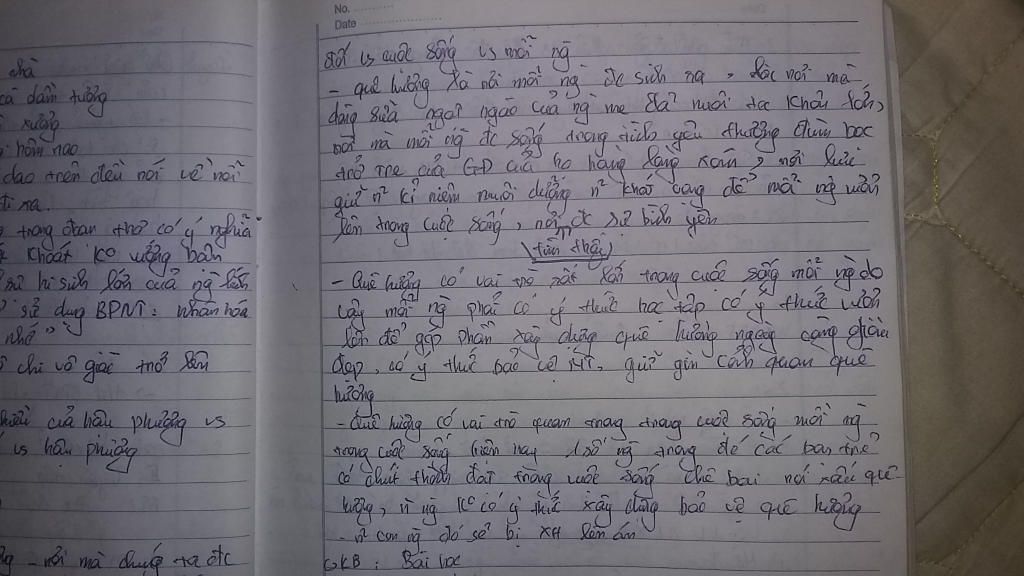 chà
cả dám tưởng
xưởng
hôm nao
dao trên đều nói về nỗi
đi xa.
trong đoạn thơ có ý nghĩa
khoát ko uống bản
sự hi sinh lớn của ng lính
sử dụng BPNT: nhân hóa
nhớ"
chi vô giác trở lên
của hậu phương vs
vs hậu phương
nơi mà chúng ta đc
No.
Date
đối vs cuộc sống vs mỗi ng
- quê hương là nơi mỗi ng đc sinh ra, là nơi mà
dòng sữa ngọt ngào của ng mẹ đã nuôi ta khôn lớn,
nơi mà mỗi ng đc sống trong tình yêu thương đùm bọc
chở che của GĐ của họ hàng làng xóm, nơi lưu
giữ n² kỉ niệm nuôi dưỡng n² khát vọng để mỗi ng vươn
lên trong cuộc sống, nơi đc sự bình yên
- Quê hương có vai trò rất lớn trong cuộc sống mỗi ng do
vậy mỗi ng phải có ý thức học tập có ý thức vươn
lên để góp phần xây dựng quê hương ngày càng giàu
đẹp, có ý thức bảo vệ MT, giữ gìn cảnh quan quê
hương
- Quê hương có vai trò quan trọng trong cuộc sống mỗi ng
trong cuộc sống hiện nay 1 số ng trong đó các bạn trẻ
có chút thành đạt trong cuộc sống chê bai nói xấu quê
hương, n² ng ko có ý thức xây dựng bảo vệ quê hương
- n² con ng đó sẽ bị XH lên án
GKB: Bài học